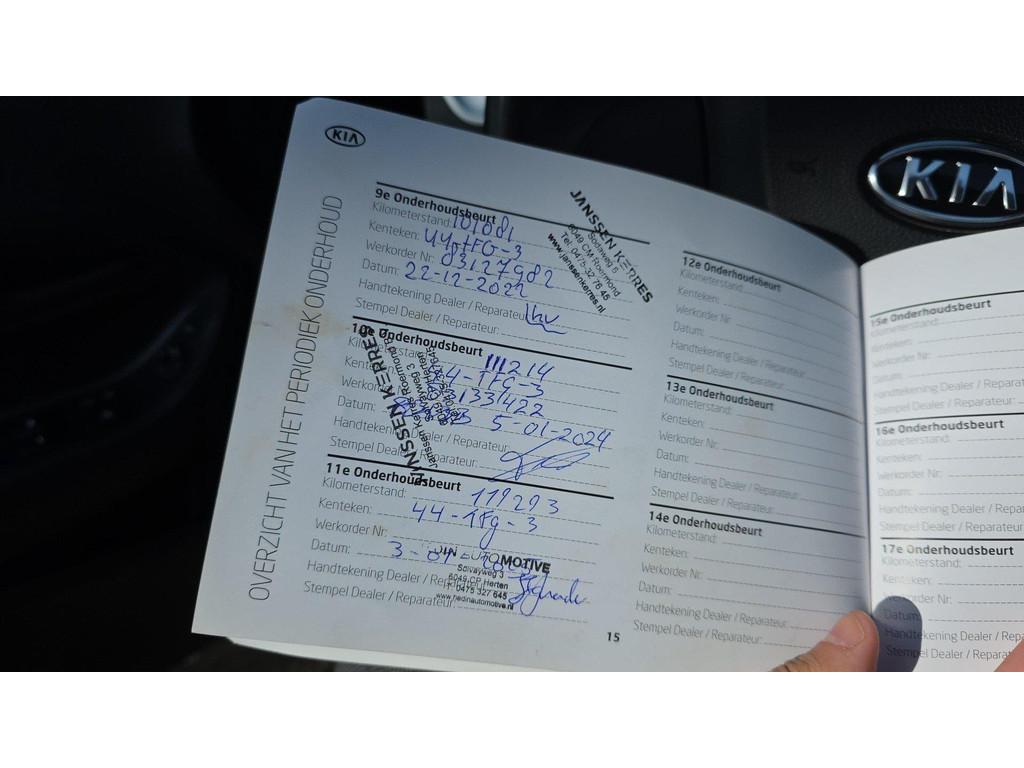 KIA
OVERZICHT VAN HET PERIODIEK ONDERHOUD
9e Onderhoudsbeurt
Kilometerstand: 101081
Kenteken: 44-TFG-3
Werkorder Nr: 83127982
Datum: 22-12-2022
Handtekening Dealer / Reparateur:
Stempel Dealer / Reparateur:
JANSSEN KERRES
Sodaweg 5
6049 CM Roermond
Tel. 0475-3276 45
www.janssenkerres.nl
10e Onderhoudsbeurt
111214
44-TFG-3
133422
Datum: 5-01-2024
Stempel Dealer / Reparateur:
JANSSEN KERRES
Janssen Kerres Roermond
Solvayweg 3
6049 CP Herten
11e Onderhoudsbeurt
Kilometerstand: 119293
Kenteken: 44-TFg-3
Werkorder Nr:
Datum: 3-01-
Handtekening Dealer / Reparateur:
Stempel Dealer / Reparateur:
AUTOMOTIVE
Solvayweg 3
6049 CP Herten
T. 0475 327 645
www.hedinautomotive.nl
15
12e Onderhoudsbeurt
Kilometerstand:
Kenteken:
Werkorder Nr:
Datum:
Handtekening Dealer / Reparateur:
Stempel Dealer / Reparateur:
13e Onderhoudsbeurt
Kilometerstand:
Kenteken:
Werkorder Nr:
Datum:
Handtekening Dealer / Reparateur:
Stempel Dealer / Reparateur:
14e Onderhoudsbeurt
Kilometerstand:
Kenteken:
Werkorder Nr:
Datum:
Handtekening Dealer / Reparateur:
Stempel Dealer / Reparateur:
KIA
15e Onderhoudsbeurt
Kilometerstand:
Kenteken:
Werkorder Nr:
Datum:
Handtekening Dealer / Reparat
Stempel Dealer / Reparateur
16e Onderhoudsbeurt
Kilometerstand:
Kenteken:
Werkorder Nr:
Datum:
Handtekening Dealer / Repara
Stempel Dealer / Reparateur
17e Onderhoudsbeurt
Kilometerstand:
Kenteken:
Werkorder Nr:
Datum:
Handtekening Dealer / Repa
Stempel Dealer / Repara